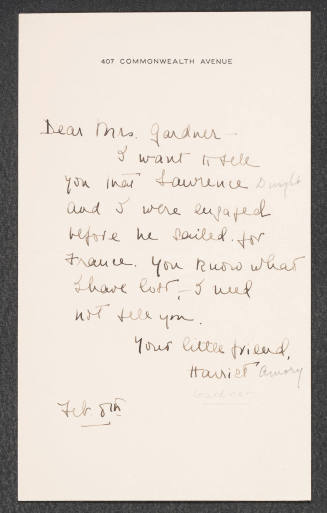 407 COMMONWEALTH AVENUE
Dear Mrs. Gardner –
I want to tell
you that Lawrence Dwight
and I were engaged
before he sailed for
France. You know what
I have lost, – I need
not tell you.
Your little friend,
Harriet Amory
Gardner
Feb. 8th